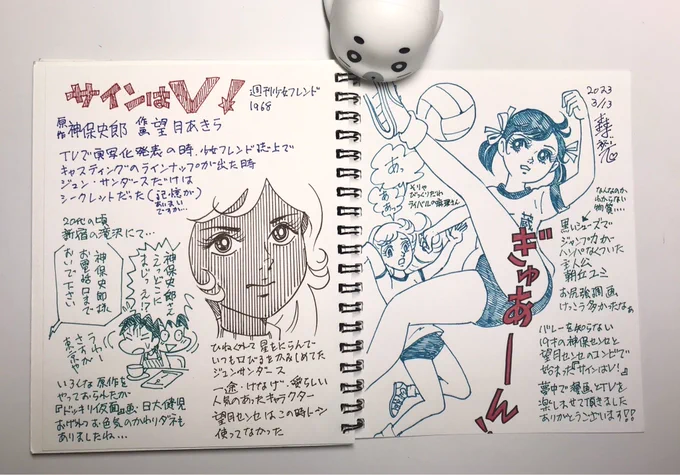 サインはV!
週刊少女フレンド
1968
原作 神保史郎 作画 望月あきら
TVで実写化発表の時、少女フレンド誌上で
キャスティングのラインナップが出た時
ジュン・サンダースだけは
シークレットだった(記憶が
あいまい
ですが…
20代の頃
新宿の滝沢にて…
神保史郎様
お電話口まで
おいで下さい
神保史郎!?
えっどこに
まじっえ!?
うわて
さすが
東京や
いろんな原作を
やってあられたか
『ドッキリ仮面』画・日大健児
おげれつお色気のかわりダネも
ありましたね…
ひねくれて星をにらんで
いつも口びるをかみしめてた
ジュンサンダース
一途・けなげ・愛らしい
人気のあったキャラクター
望月センセはこの時トーン
使ってなかった
2023
3/13
あっ
あっ
あっ
そりゃ
びっくりだわ
ライバルの麻理さん
ぎゅあーん!
なんなのか
わからない
物質…
黒いシューズで
ジャンプ力が
ハンパなくついた
主人公
朝丘ユミ
お尻強調画
けっこう多かったなぁ
バレーを知らない
19才の神保センセと
望月センセのコンビで
始まった『サインはV!』
夢中で漫画とTVを
楽しませて頂きました
ありがとうございます!!